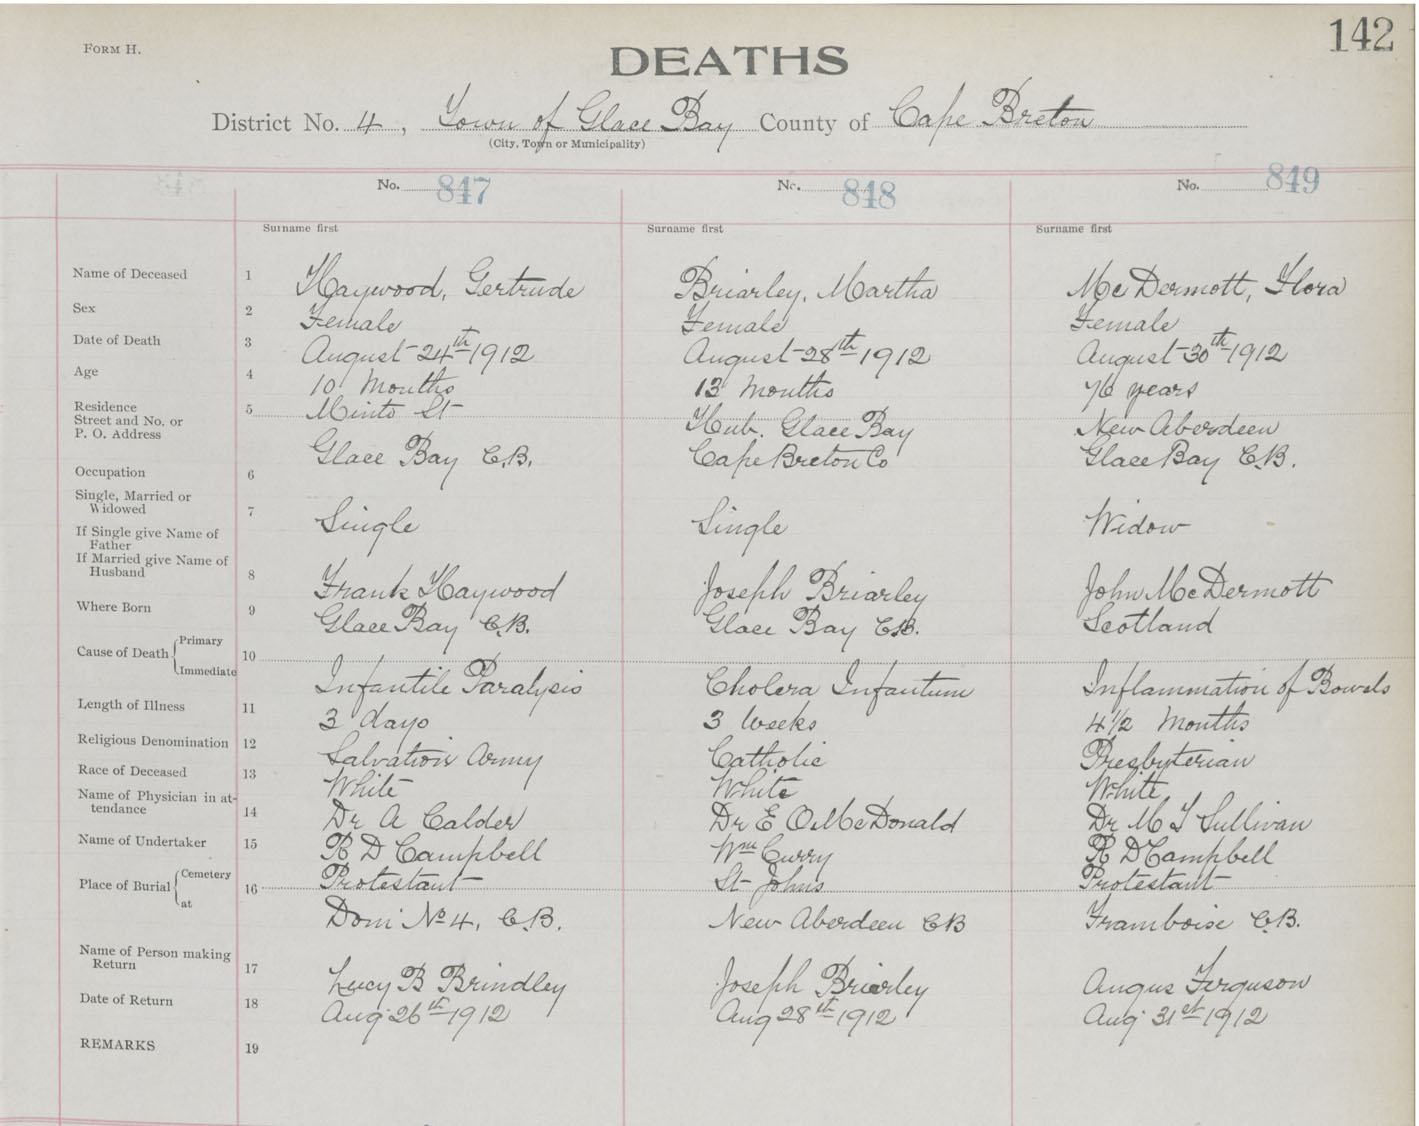 142
FORM H.
DEATHS
District No. 4, Town of Glace Bay County of Cape Breton
(City, Town or Municipality)
No. 847 No. 848 No. 849
Surname first Surname first Surname first
Name of Deceased 1 Haywood, Gertrude Briarley, Martha McDermott, Flora
Sex 2 Female Female Female
Date of Death 3 August 24th 1912 August 28th 1912 August 30th 1912
Age 4 10 Months 13 Months 76 years
Residence
Street and No. or
P. O. Address
5 Minto St Hub. Glace Bay New Aberdeen
Glace Bay C.B. Cape Breton Co Glace Bay C.B.
Occupation 6
Single, Married or
Widowed
7 Single Single Widow
If Single give Name of
Father
If Married give Name of
Husband
8 Frank Haywood Joseph Briarley John McDermott
Where Born 9 Glace Bay C.B. Glace Bay C.B. Scotland
Cause of Death Primary
Immediate
10 Infantile Paralysis Cholera Infantum Inflammation of Bowels
Length of Illness 11 3 days 3 Weeks 4 1/2 Months
Religious Denomination 12 Salvation Army Catholic Presbyterian
Race of Deceased 13 White White White
Name of Physician in at-
tendance
14 Dr A Calder Dr E O McDonald Dr M T Sullivan
Name of Undertaker 15 R D Campbell Wm Curry R D Campbell
Place of Burial Cemetery
at
16 Protestant St Johns Protestant
Dom No 4, C.B. New Aberdeen CB Framboise C.B.
Name of Person making
Return
17 Lucy B Brindley Joseph Briarley Angus Ferguson
Date of Return 18 Aug 26th 1912 Aug 28th 1912 Aug 31st 1912
REMARKS 19